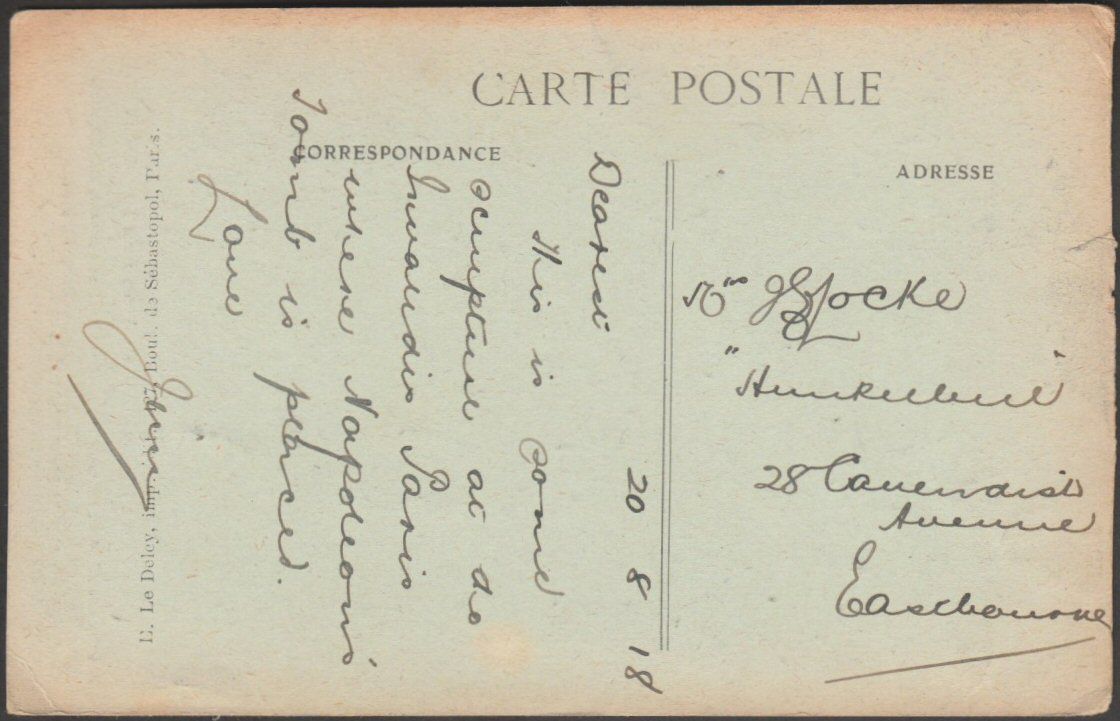 CARTE POSTALE
CORRESPONDANCE
ADRESSE
20 8 18
Dearest
This is some
sculpture at des
Invalides Paris
where Napoleons
Tomb is placed.
Love
Mrs Locke
28 Cavendish
Avenue
Eastbourne
E. Le Deley, imp. Boul. de Sébastopol, Paris.